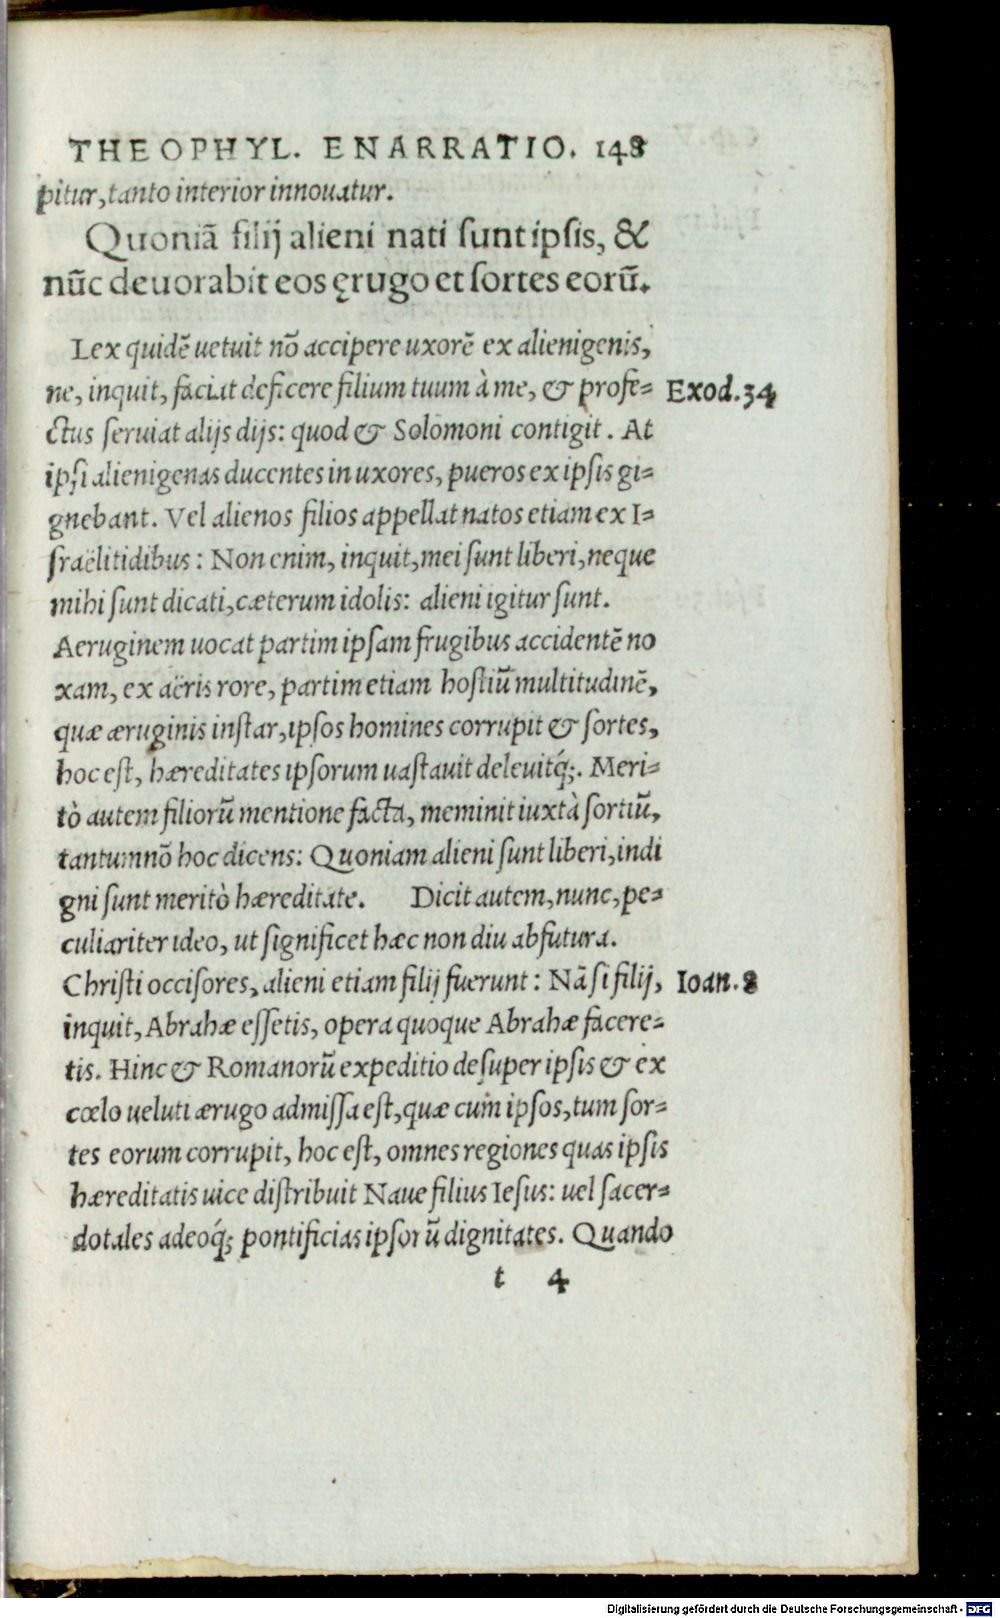 THEOPHYL. ENARRATIO. 148
pitur, tanto interior innouatur.
Quoniã filij alieni nati sunt ipsis, &
nũc deuorabit eos ęrugo et sortes eorũ.
Lex quidẽ uetuit nõ accipere uxorẽ ex alienigenis,
ne, inquit, faciat deficere filium tuum à me, & profe-
Exod. 34
ctus seruiat alijs dijs: quod & Solomoni contigit. At
ipsi alienigenas ducentes in uxores, pueros ex ipsis gi-
gnebant. Vel alienos filios appellat natos etiam ex I-
sraëlitidibus: Non enim, inquit, mei sunt liberi, neque
mihi sunt dicati, cæterum idolis: alieni igitur sunt.
Aeruginem uocat partim ipsam frugibus accidentẽ no
xam, ex aëris rore, partim etiam hostiũ multitudinẽ,
quæ æruginis instar, ipsos homines corrupit & sortes,
hoc est, hæreditates ipsorum uastauit deleuitq́;. Meri-
tò autem filiorũ mentione facta, meminit iuxtà sortiũ,
tantumnõ hoc dicens: Quoniam alieni sunt liberi, indi
gni sunt meritò hæreditate. Dicit autem, nunc, pe-
culiariter ideo, ut significet hæc non diu abfutura.
Christi occisores, alieni etiam filij fuerunt: Nã si filij,
Ioan. 8
inquit, Abrahæ essetis, opera quoque Abrahæ facere-
tis. Hinc & Romanorũ expeditio desuper ipsis & ex
cœlo ueluti ærugo admissa est, quæ cum ipsos, tum sor-
tes eorum corrupit, hoc est, omnes regiones quas ipsis
hæreditatis uice distribuit Naue filius Iesus: uel sacer-
dotales adeoq́; pontificias ipsorũ dignitates. Quando
t 4
Digitalisierung gefördert durch die Deutsche Forschungsgemeinschaft - DFG